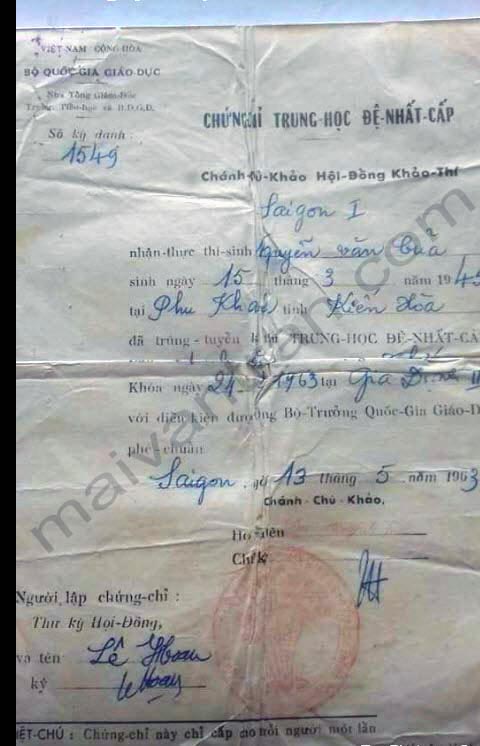 VIỆT-NAM CỘNG-HÒA
BỘ QUỐC-GIA GIÁO-DỤC
Nha Tổng Giám-Đốc
Trung, Tiểu-học và B.D.G.D.
Số ký danh :
1549
CHỨNG CHỈ TRUNG-HỌC ĐỆ-NHẤT-CẤP
Chánh Chủ-Khảo Hội-Đồng Khảo-Thí
Saigon I
nhận-thực thí-sinh Nguyễn văn Cuả
sinh ngày 15 tháng 3 năm 194
tại Phu Khai tỉnh Kiến Hòa
đã trúng-tuyển kỳ thi TRUNG-HỌC ĐỆ-NHẤT-CẤ
Khóa ngày 24 1963 tại Gia Định II
với điều kiện đương Bộ-Trưởng Quốc-Gia Giáo-D
phê-chuẩn
Saigon, ngày 13 tháng 5 năm 1963
Chánh-Chủ-Khảo,
Họ tên
Chữ ký
Người lập chứng-chỉ :
Thư ký Hội-Đồng,
và tên Lê Hoan
ký Hoan
IỆT-CHÚ : Chứng-chỉ này chỉ cấp cho mỗi người một lần
maivantran.com